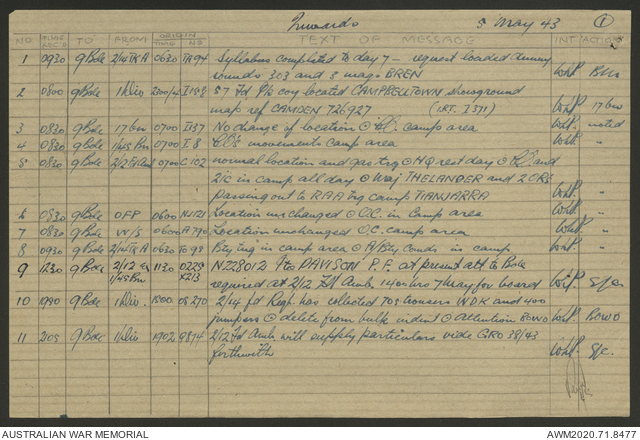 Inwards 5 May 43 1
NO TIME REC'D TO FROM ORIGIN TIME NO TEXT OF MESSAGE INT ACTION
1 0930 9 Bde 2/14 TRA 0630 TR94 Syllabus completed to day 7 — request loaded dummy
rounds 303 and 3 mags BREN
2 0800 9 Bde 1 Div I158 57 Fd Pk coy located CAMPBELLTOWN showground
map ref CAMDEN 726927 17 Bn
3 0830 9 Bde 17 Bn 0700 I137 No change of location camp area noted
4 0830 9 Bde 1/45 Bn 0700 I8 movements camp area "
5 0830 9 Bde 2/12 Fd Amb 0700 C102 normal location and gas trg HQ rest day and
2ic in camp all day Maj THELANDER and 2 ORs
passing out to RAA trg camp TIANJARRA "
6 0830 9 Bde OFP 0600 Location unchanged O.C. in Camp area "
7 0830 9 Bde W/S 0600 A790 Location unchanged O.C. camp area "
8 0930 9 Bde 2/14 TRA 0630 TO98 Bty trg in camp area A/Bty Comds in camp "
9 1230 9 Bde 2/12 1/45 Bn 1130 0225 X213 NZ28012 Pte DAVISON P.F. at present att to Bde
required at 2/12 Fd Amb 1400 hrs 7 May for board S/c
10 1990 9 Bde 1 Div 1800 OS270 2/14 Fd Regt has collected 705 trousers WDK and 400
jumpers delete from bulk indent Attention BOWO BOWO
11 2105 9 Bde 1 Div 1902 9874 2/12 Fd Amb will supply particulars vide GRO 38/43
forthwith S/c
AUSTRALIAN WAR MEMORIAL AWM2020.71.8477